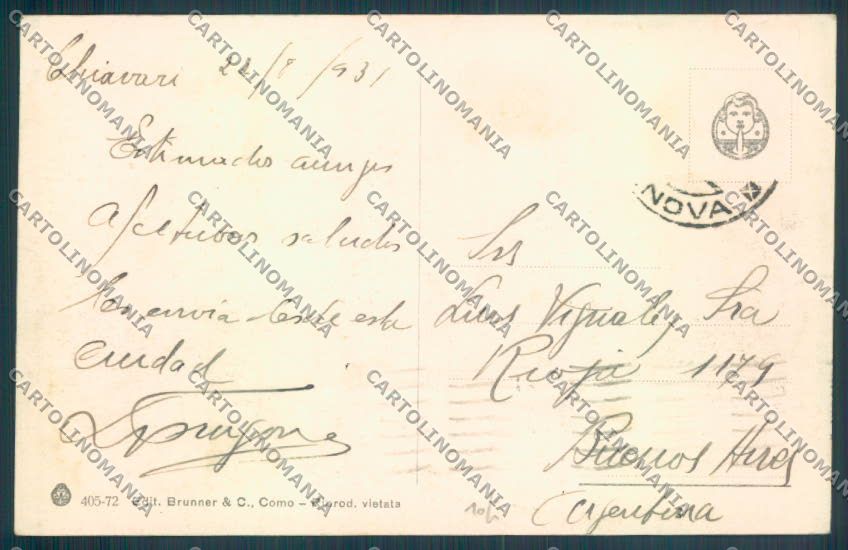 Chiavari 22/8/931
Estimados amigos
Afectuosos saludos
les envia desde esta
ciudad
Srs
Luis Vignale y Sra
Rioja 1179
Buenos Aires
Argentina
NOVA
405-72 Edit. Brunner & C., Como – Riprod. vietata
CARTOLINOMANIA